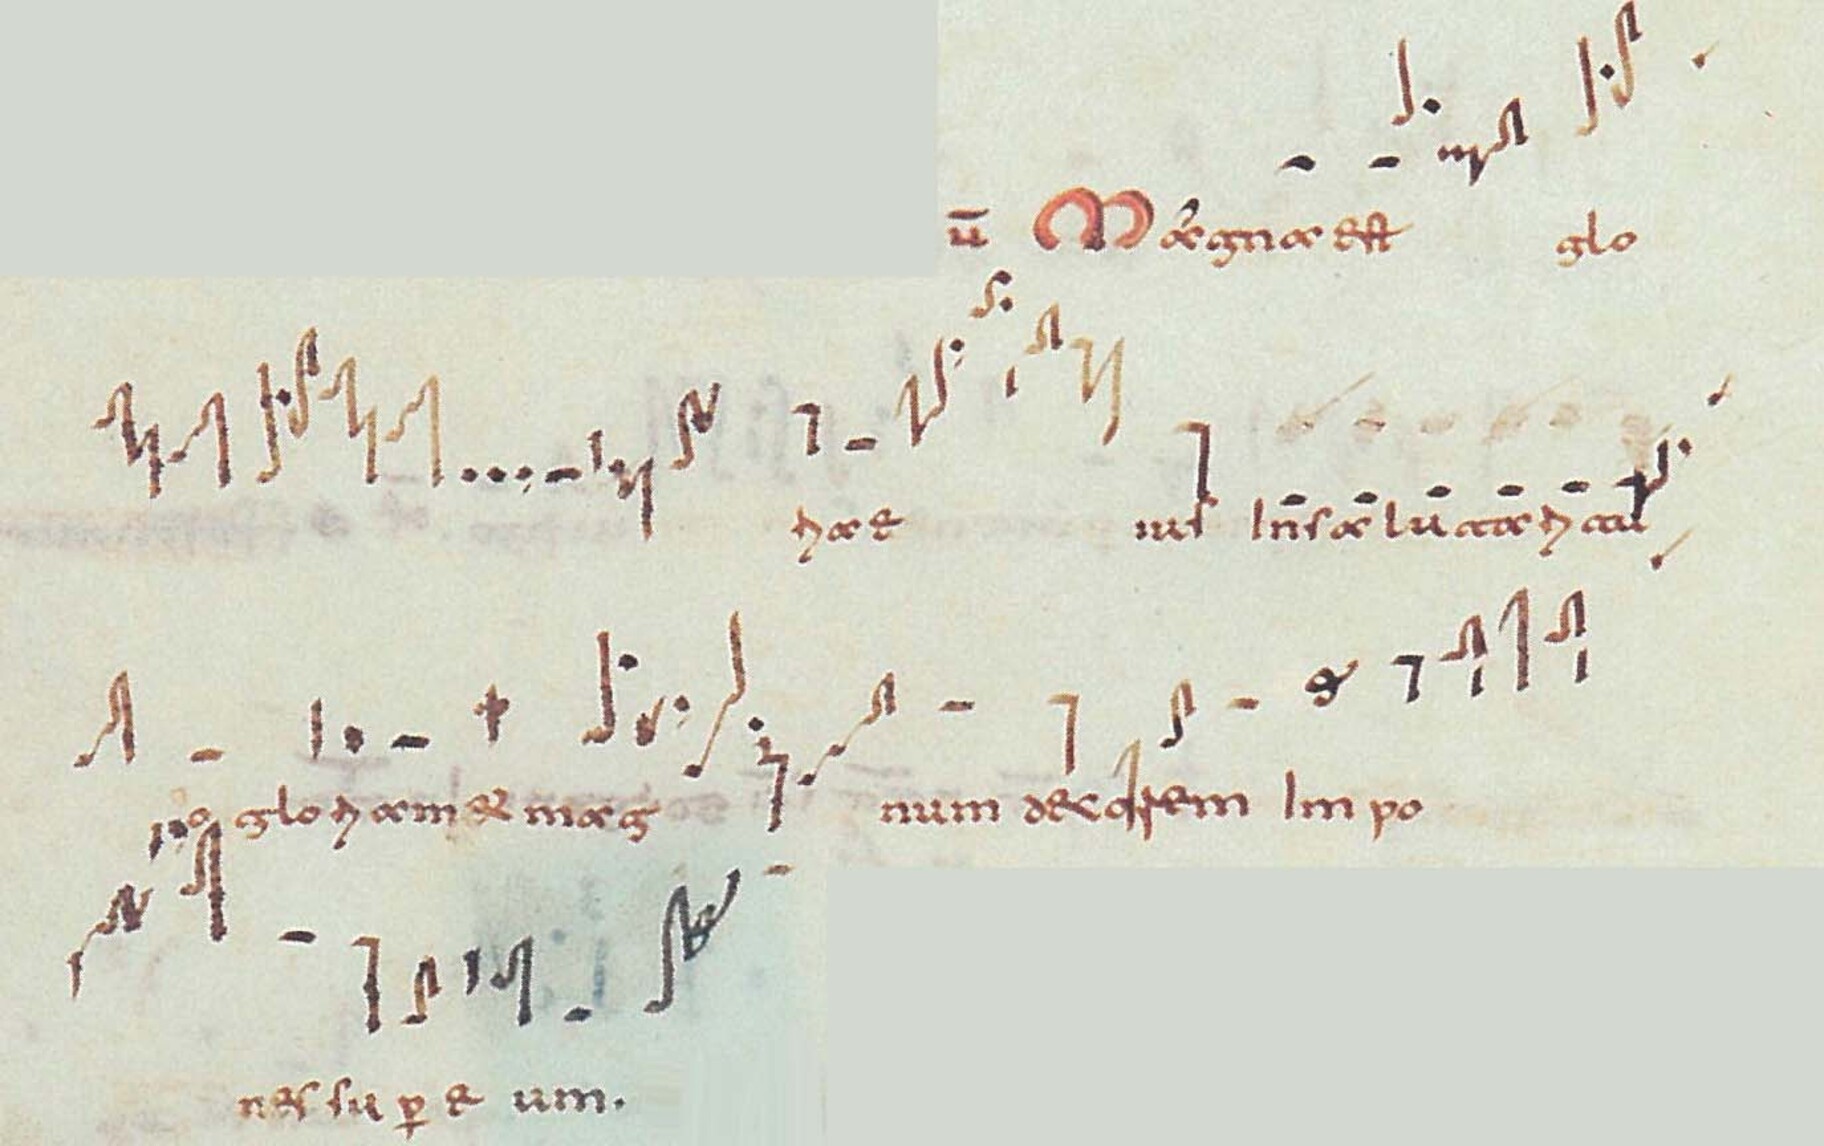 ū Magna est glo
ria e ius In salutari tu
o gloriam & mag num decorem Im po
nes su ꝑ e um.